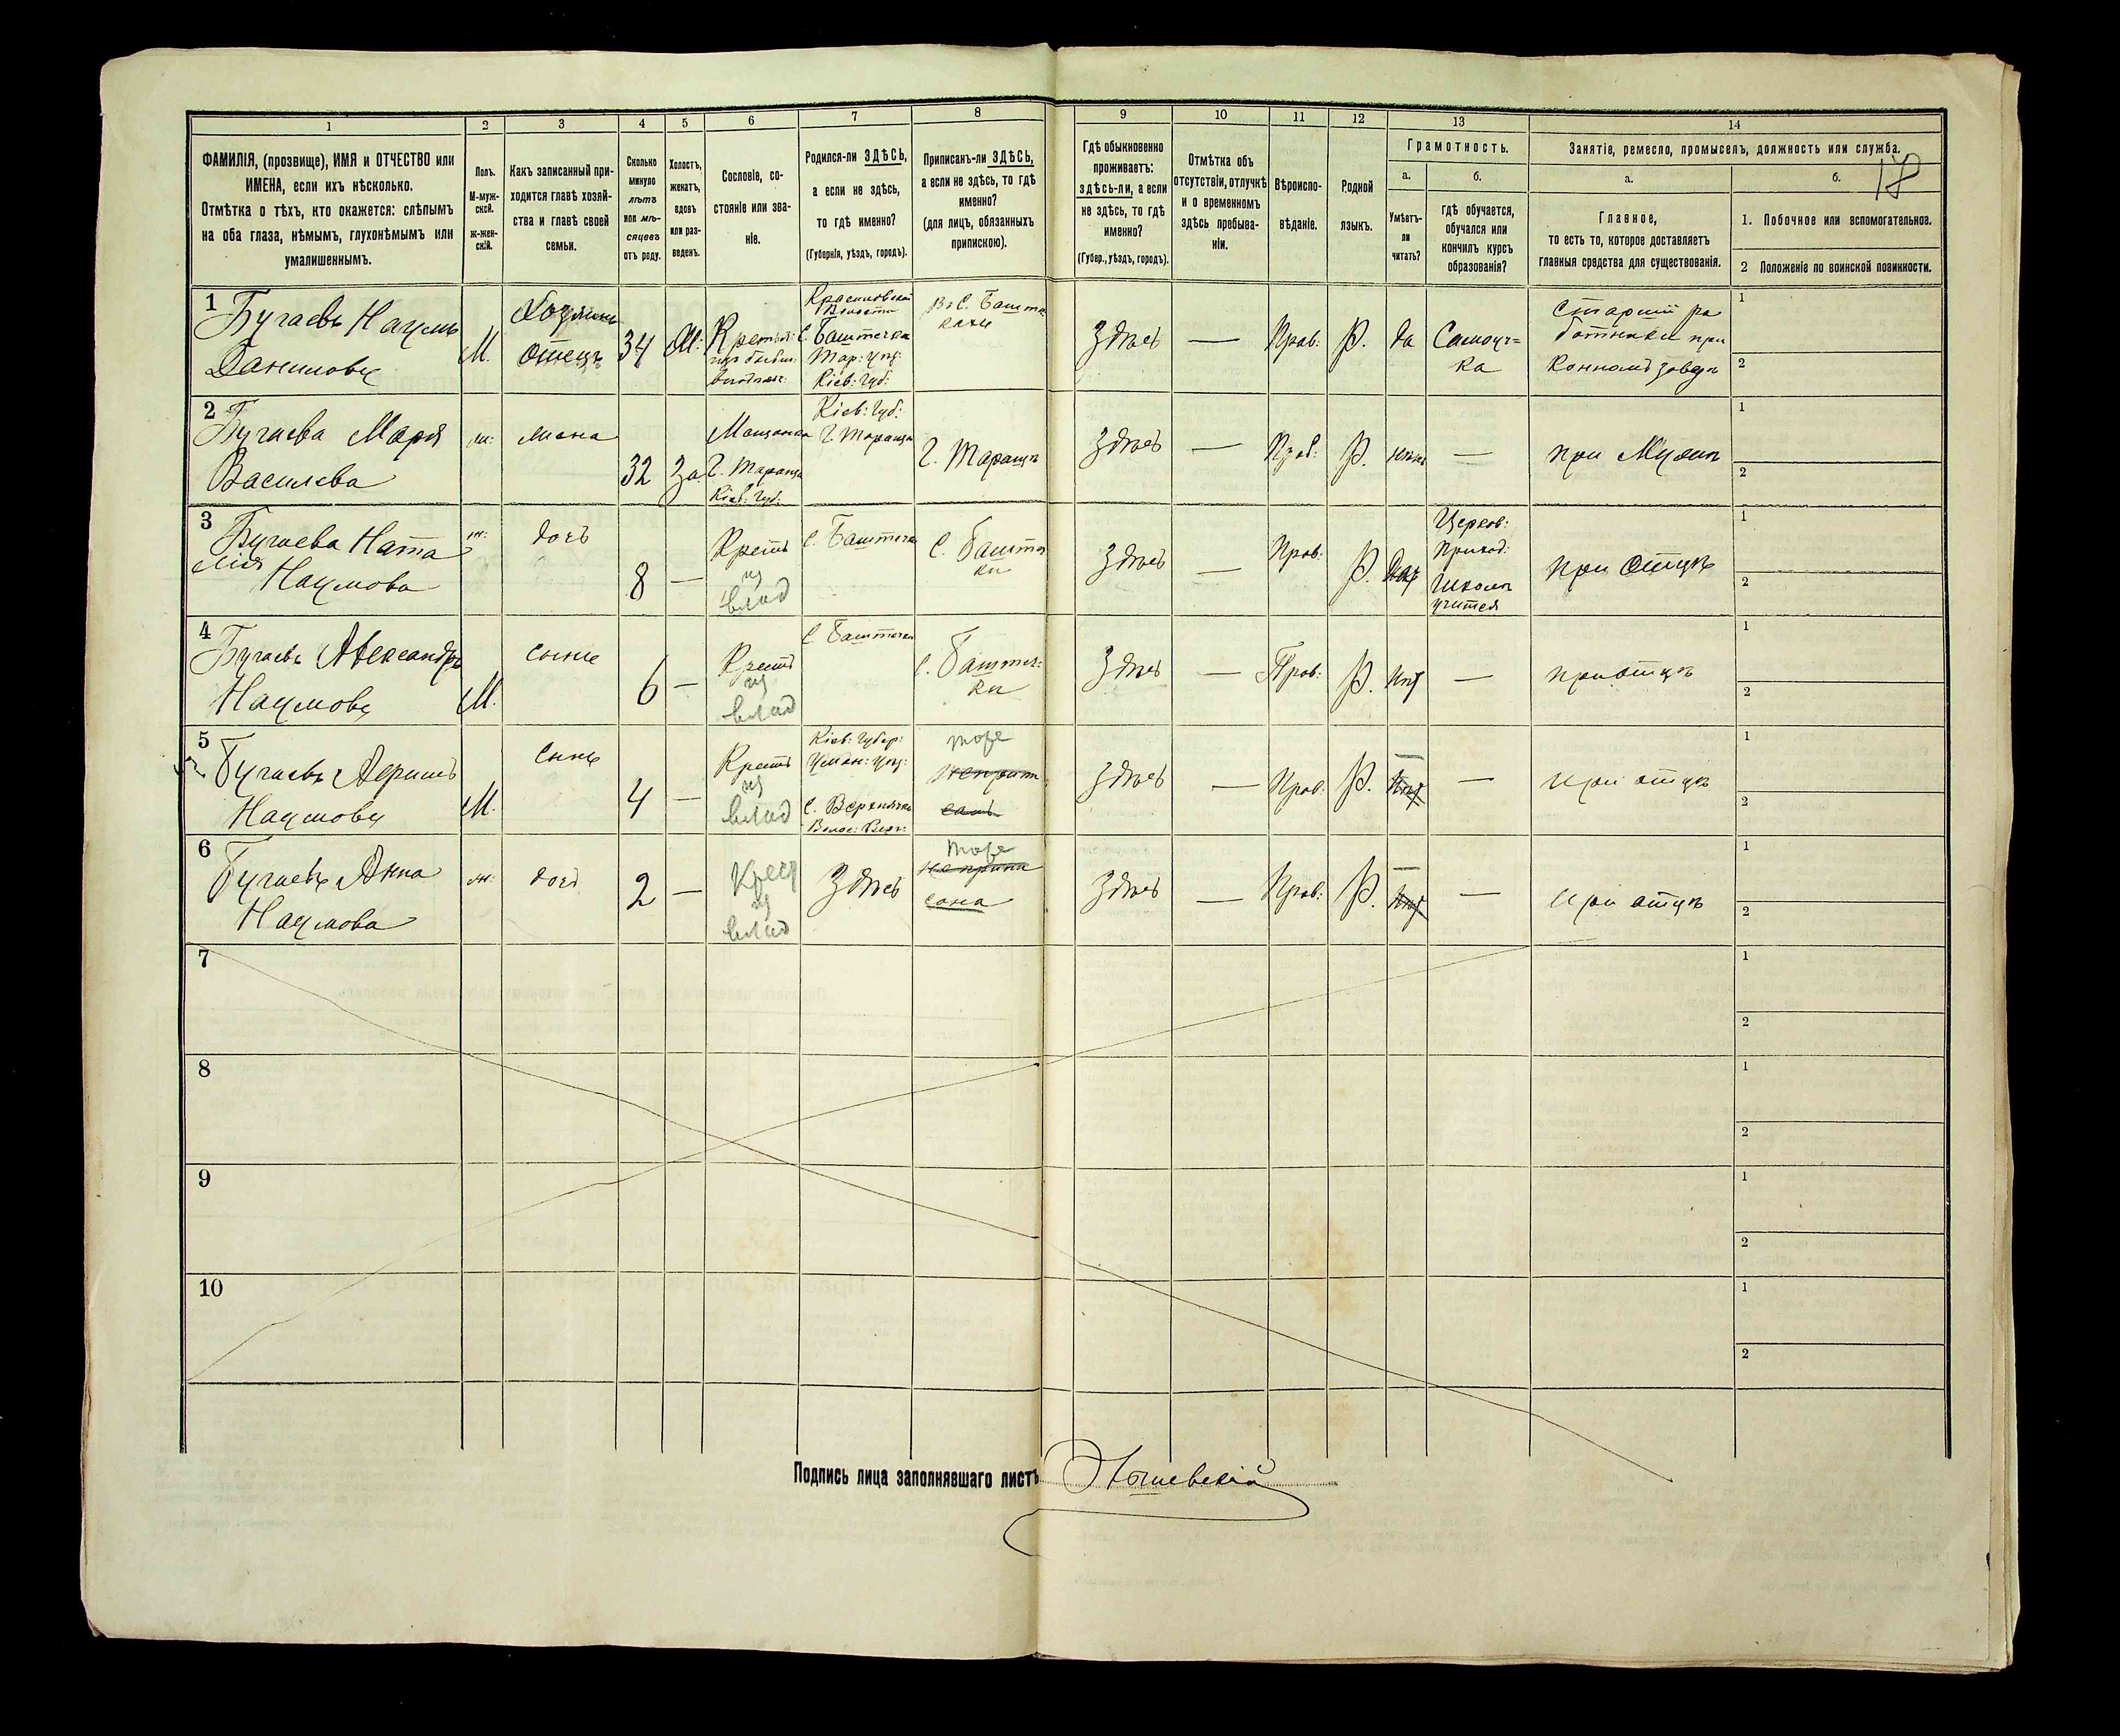 1 2 3 4 5 6 7 8 9 10 11 12 13 14
ФАМИЛІЯ, (прозвище), ИМЯ и ОТЧЕСТВО или
ИМЕНА, если ихъ нѣсколько.
Отмѣтка о тѣхъ, кто окажется: слѣпымъ
на оба глаза, нѣмымъ, глухонѣмымъ или
умалишеннымъ.
Полъ.
М-муж-
ской.
ж-жен-
скій.
Какъ записанный при-
ходится главѣ хозяй-
ства и главѣ своей
семьи.
Сколько
минуло
лѣтъ
или мѣ-
сяцевъ
отъ роду.
Холостъ,
женатъ,
вдовъ
или раз-
веденъ.
Сословіе, со-
стояніе или зва-
ніе.
Родился-ли ЗДѢСЬ,
а если не здѣсь,
то гдѣ именно?
(Губернія, уѣздъ, городъ).
Приписанъ-ли ЗДѢСЬ,
а если не здѣсь, то гдѣ
именно?
(для лицъ, обязанныхъ
припискою).
Гдѣ обыкновенно
проживаетъ:
здѣсь-ли, а если
не здѣсь, то гдѣ
именно?
(Губер., уѣздъ, городъ).
Отмѣтка объ
отсутствіи, отлучкѣ
и о временномъ
здѣсь пребыва-
ніи.
Вѣроиспо-
вѣданіе.
Родной
языкъ.
Грамотность.
а.
Умѣетъ-
ли
читать?
б.
гдѣ обучается,
обучался или
кончилъ курсъ
образованія?
Занятіе, ремесло, промыселъ, должность или служба.
а.
Главное,
то есть то, которое доставляетъ
главныя средства для существованія.
б.
18
1. Побочное или вспомогательное.
2 Положеніе по воинской повинности.
1
Бугаевъ Наумъ
Даниловъ
М.
Хозяинъ
отецъ
34
Ж.
Крестья:
изъ бывш:
владѣл:
Красиловской
Волости
С. Баштечка
Тар: уѣз:
Кіев: Губ:
Въ С. Баште
чкѣ
Здѣсь
—
Прав:
Р.
да
Самоуч=
ка
Старшій ра
ботникъ при
Конномъ заводѣ
1
2
2
Бугаева Марія
Васильева
ж:
жена
32
За
Мѣщанка
Г. Тараща
Кіев: Губ:
Кіев: Губ:
Г. Тараща
Г. Таращѣ
Здѣсь
—
Прав:
Р.
нѣтъ
—
при Мужѣ
1
2
3
Бугаева Ната
лія
Наумова
ж:
дочь
8
—
Крест
из
влад
С. Баштечка
С. Баште
ки
Здѣсь
—
Прав:
Р.
Церков:
Приход:
Школѣ
учится
при отцѣ
1
2
4
Бугаевъ Александръ
Наумовъ
М.
сынъ
6
—
Крест
из
влад
С. Баштечка
С. Баштеч:
ки
Здѣсь
—
Прав:
Р.
нѣт
—
при отцѣ
1
2
5
Бугаевъ
Наумовъ
М.
сынъ
4
—
Крест
из
влад
Кіев: Губер:
Уман: уѣз:
С. Верхнячка
Волос: Верх:
тоже
неприпи
санъ
Здѣсь
—
Прав:
Р.
—
нѣт
—
при отцѣ
1
2
6
Бугаева Анна
Наумова
ж:
дочь
2
—
Крест
из
влад
Здѣсь
тоже
неприпи
сана
Здѣсь
—
Прав:
Р.
—
нѣт
—
при отцѣ
1
2
7
1
2
8
1
2
9
1
2
10
1
2
Подпись лица заполнявшаго листъ